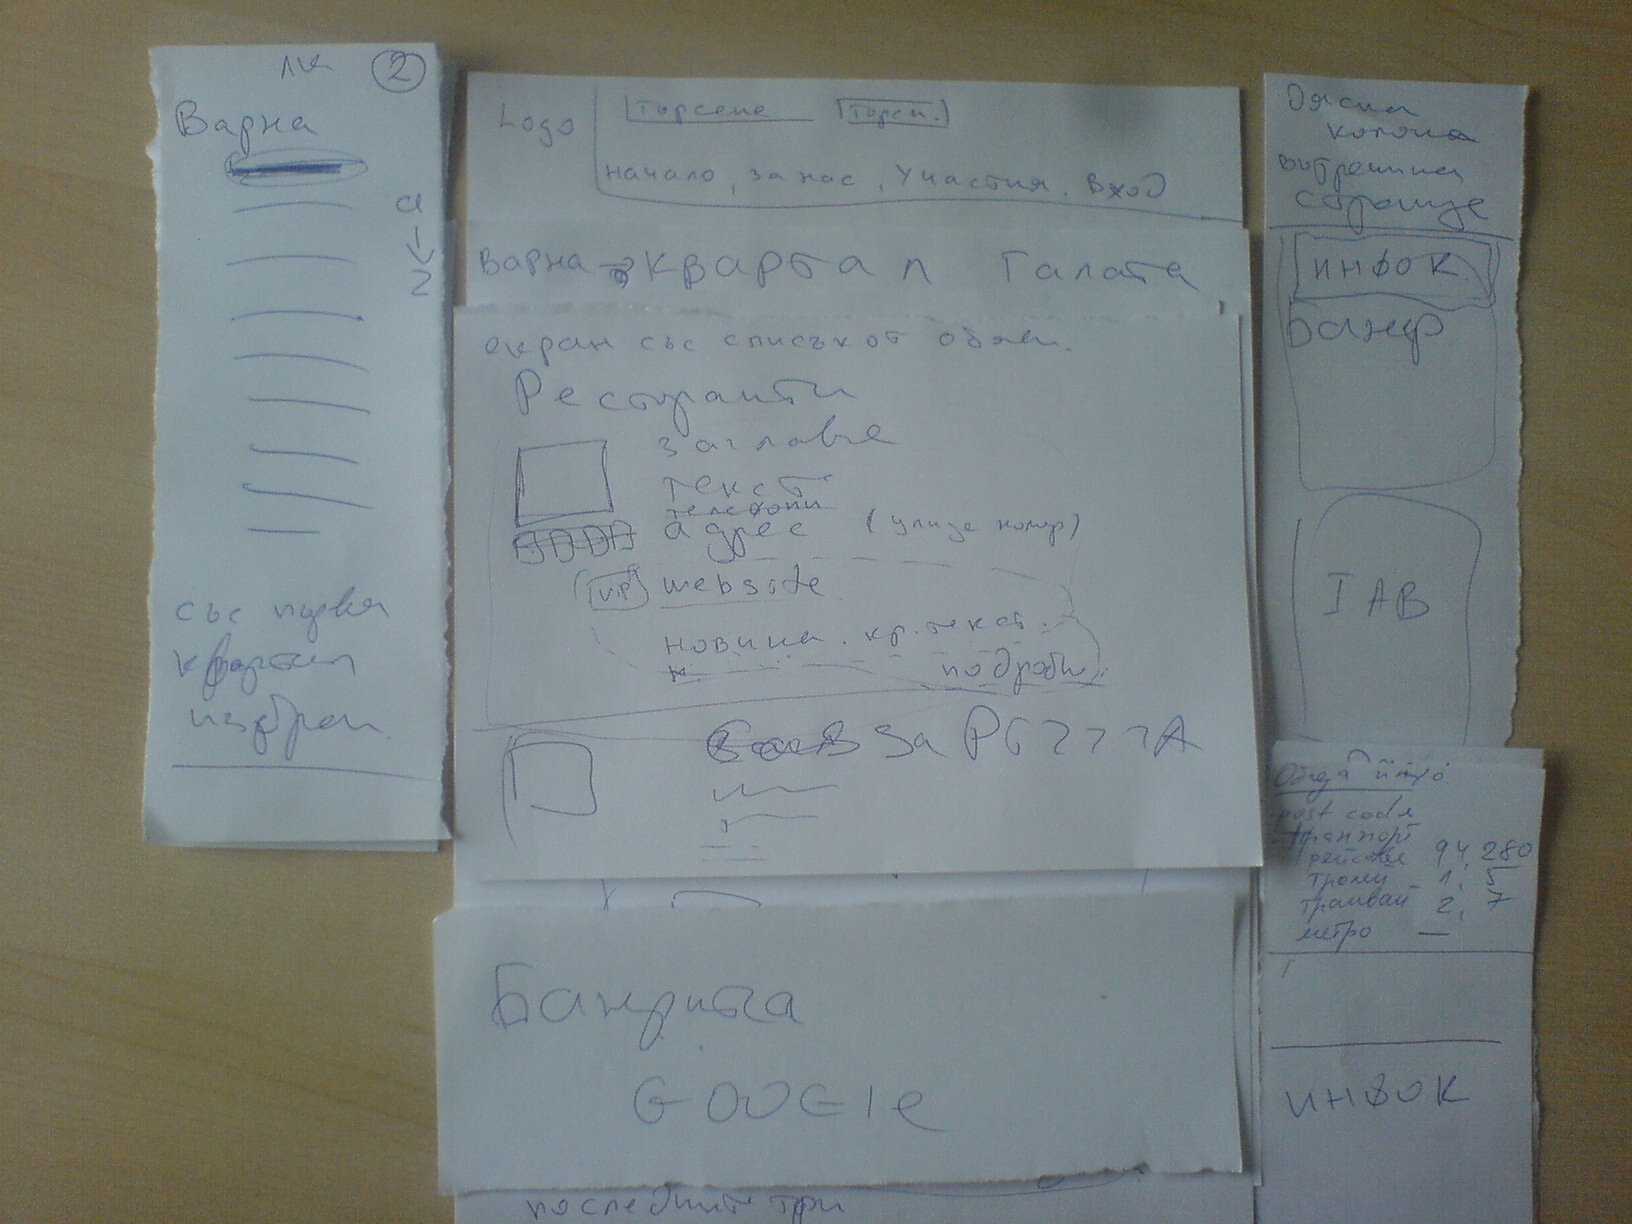 ЛК 2
Варна
а
2
със първия
квартал
избран
Logo
търсене
търси.
начало, за нас, участия. вход
Варна квартал Галата
екран със списък от обяви.
Ресторанти
заглавие
текст
телефони
адрес (улица номер)
VIP website
новина. кр. текст.
подробн.
за
Банерита
GOOGLE
последните три
Дясна
колона
вътрешни
страница
ИНФОК
банер
IAB
Обща инфо
post code
транспорт
рейсове 94, 280
тролеи 1, 5
трамваи 2, 7
метро —
ИНФОК